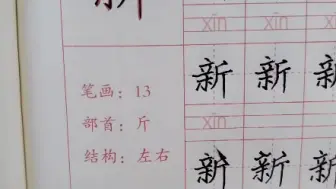 新
xīn xīn xīn
新 新 新
笔画：13
部首：斤
xīn
结构：左右
新 新 新